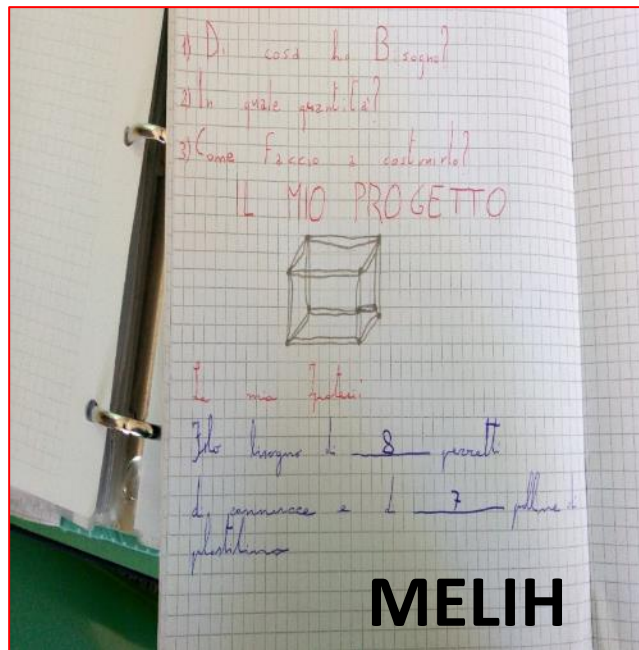 1) Di cosa ho Bisogno?
2) In quale quantità?
3) Come Faccio a costruirlo?
IL MIO PROGETTO
La mia Ipotesi:
Ho bisogno di 8 pezzetti
di cannucce e di 7 palline di
plastilina
MELIH